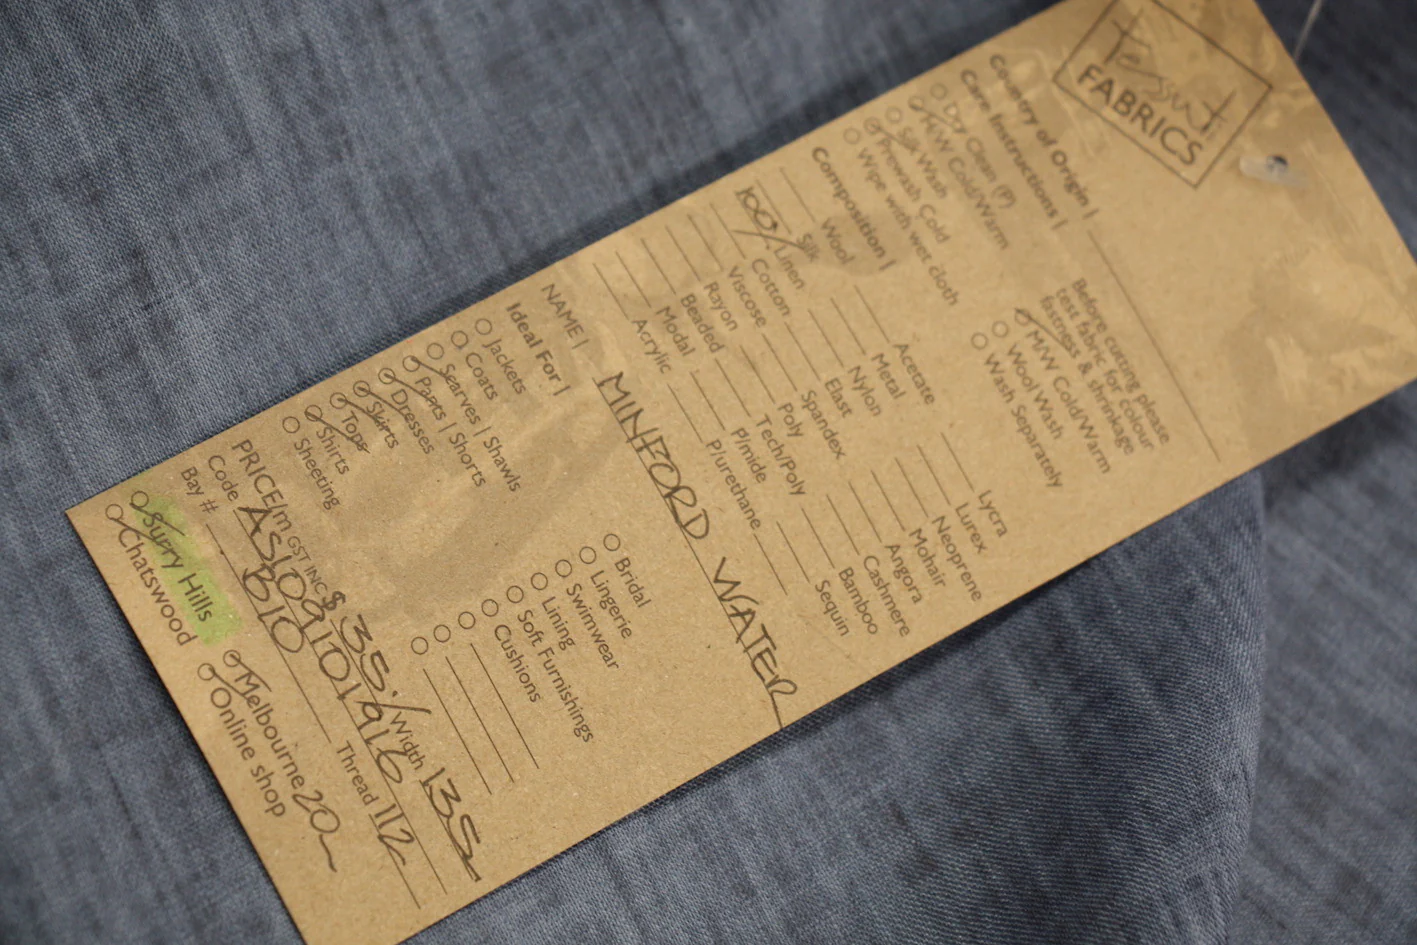 Tessuti
FABRICS
Country of Origin |
Care Instructions |
Before cutting please
test fabric for colour
fastness & shrinkage
Dry Clean (P)
H/W Cold/Warm
Silk Wash
Prewash Cold
Wipe with wet cloth
M/W Cold/Warm
Wool Wash
Wash Separately
Composition |
Wool
Silk
100% Linen
Cotton
Viscose
Rayon
Beaded
Modal
Acrylic
Acetate
Metal
Nylon
Elast
Spandex
Poly
Tech/Poly
P/mide
P/urethane
Lycra
Lurex
Neoprene
Mohair
Angora
Cashmere
Bamboo
Sequin
NAME | MINFORD WATER
Ideal For |
Jackets
Coats
Scarves | Shawls
Pants | Shorts
Dresses
Skirts
Tops
Shirts
Sheeting
Bridal
Lingerie
Swimwear
Lining
Soft Furnishings
Cushions
PRICE/m GST INC $ 35./ Width 135
Code ASI09101916 Thread 112
Bay # B10
Surry Hills Melbourne 20m
Chatswood Online shop